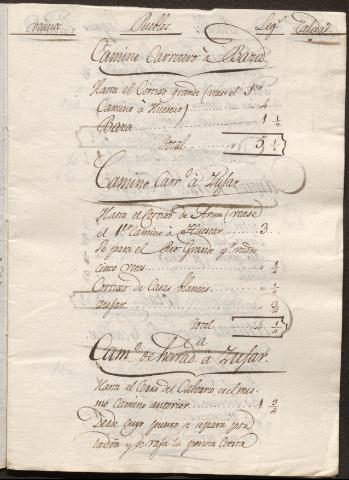 Pueblos Leg.s Calidad
Camino Carretero à Baza
Hasta el Cortijo grande (vease el 1er
Camino à Huescar) 4
Baza 1 1/2
Total 5 1/2
Camino Carro. à Zujar
Hasta el Cortijo de (vease
el 1er Camino à Huescar 3
Se pasa el Rio Grande pr.
cinco veces 1/2
Cortijo de Casas blancas 1/4
Zujar 3/4
total 4 1/2
Camo. de herrada à Zujar
Hasta el Cerro del Calvario es el mis-
mo camino anterior 1 2/4
Desde cuyo punto se separa por la
y se baja la cuesta